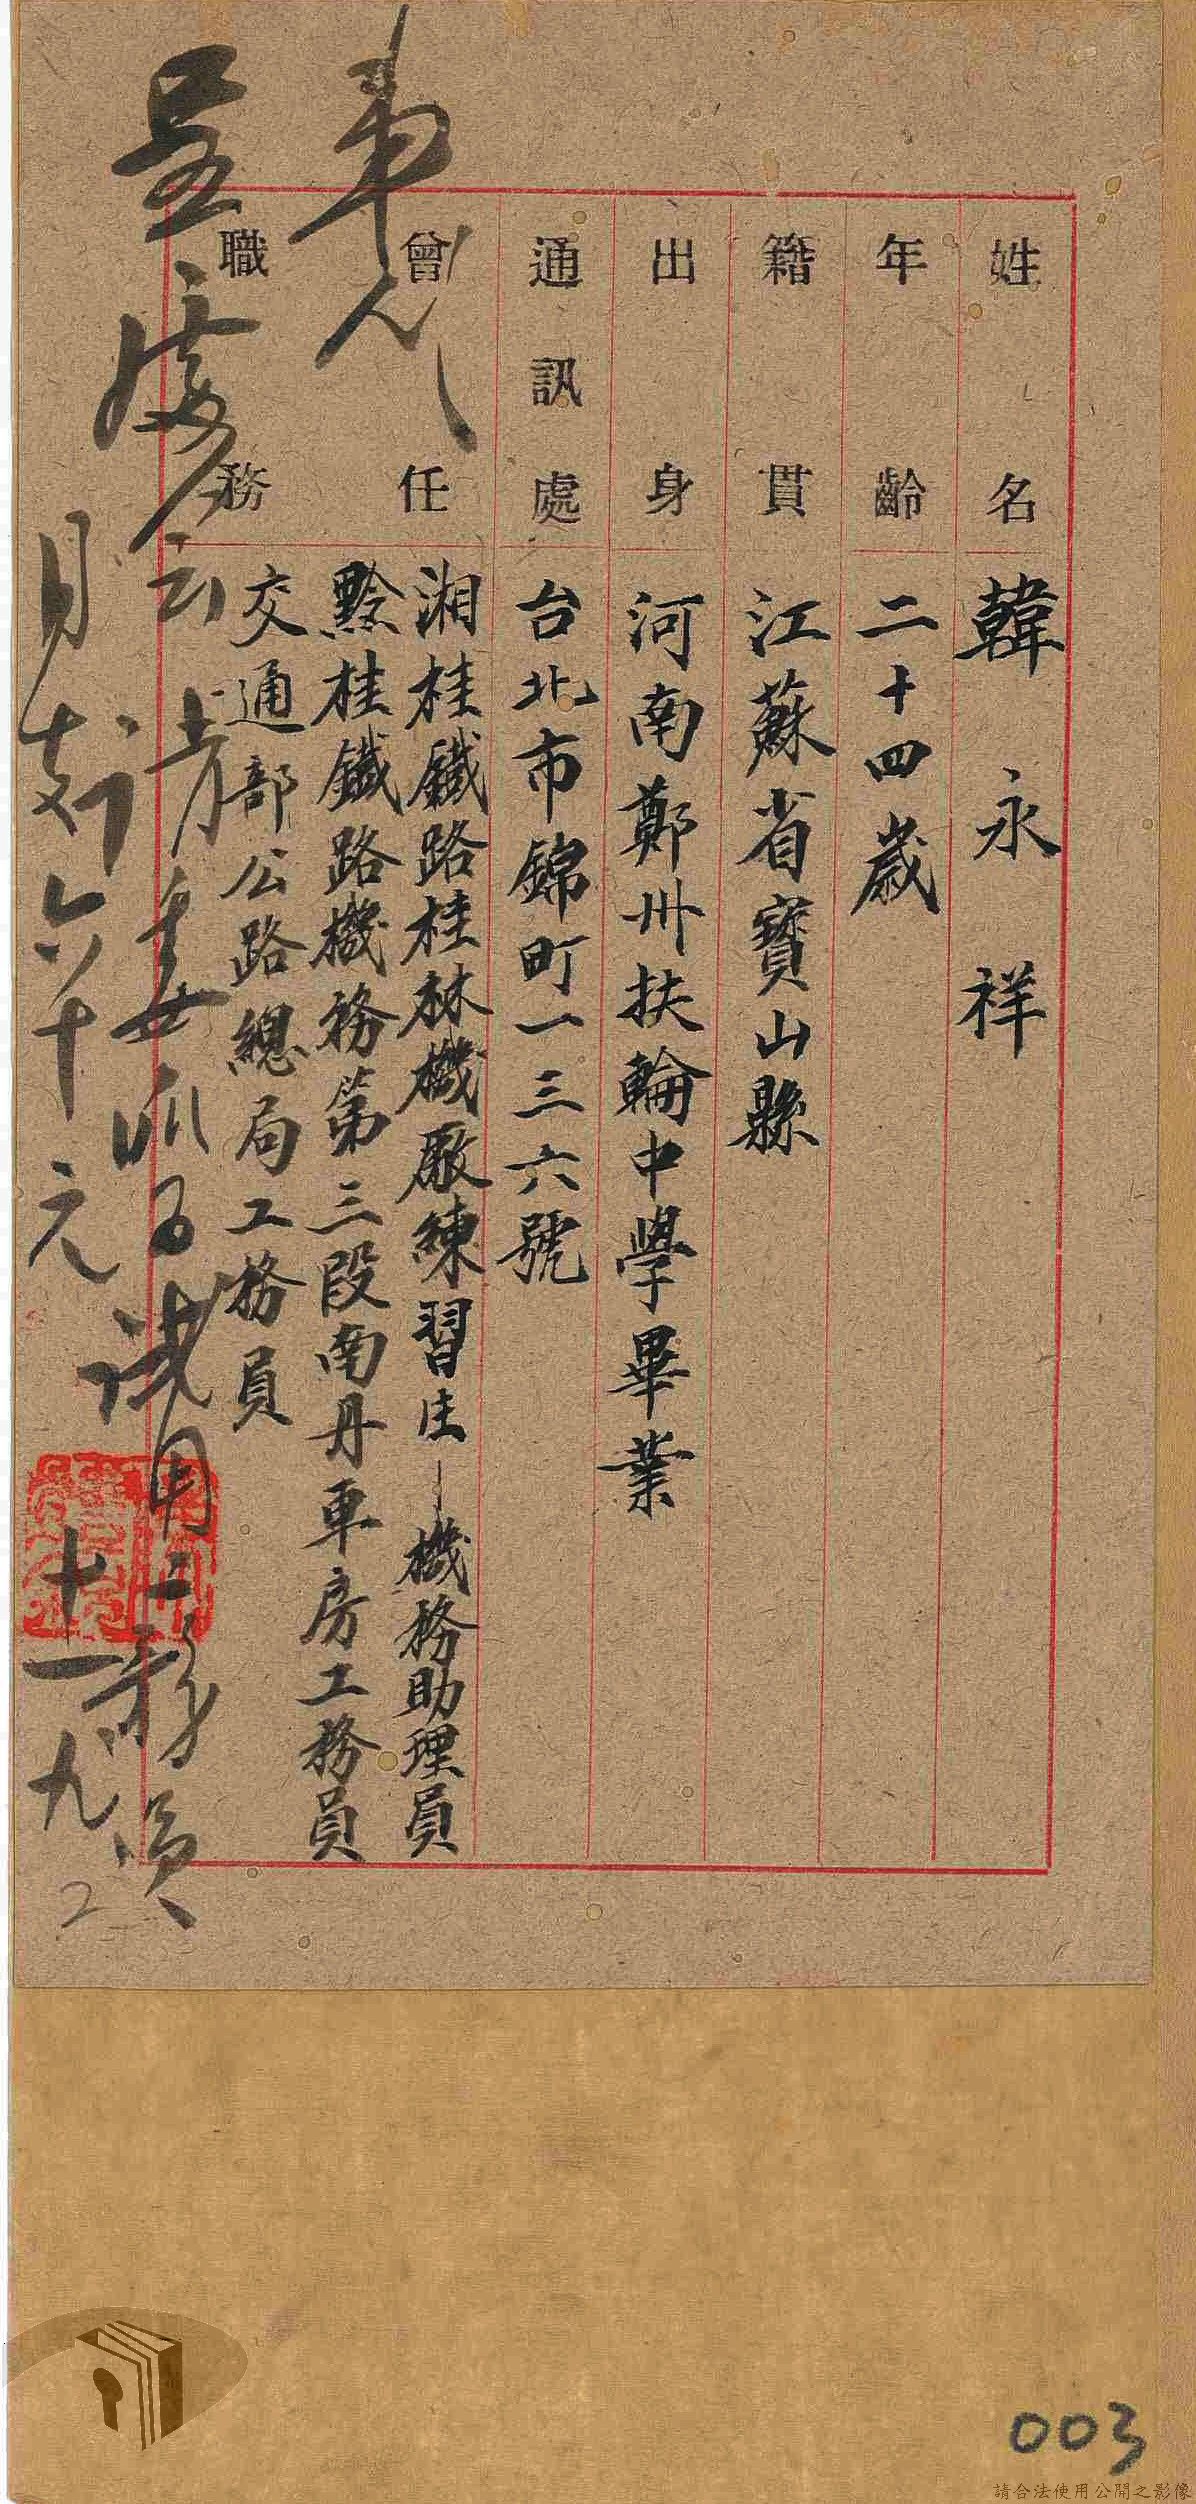 姓名 韓永祥
年齡 二十四歲
籍貫 江蘇省寶山縣
出身 河南鄭州扶輪中學畢業
通訊處 台北市錦町一三六號
曾任職務 湘桂鐵路桂林機廠練習生—機務助理員
黔桂鐵路機務第三段南丹車房工務員
交通部公路總局工務員
試用工務員
月支六十元
十一 九
2
003
請合法使用公開之影像